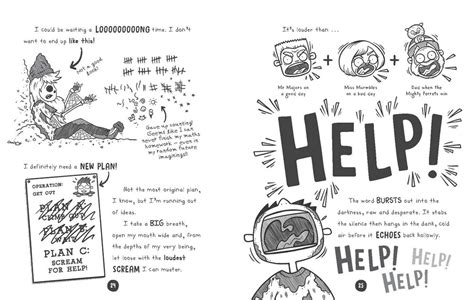 I could be waiting a LOOOOOOOONG time. I don't
want to end up like this!
not a
good
look!
Gave up counting!
Seems like I can
never finish my maths
homework – even in
my random future
imaginings!
I definitely need a NEW PLAN!
OPERATION:
GET OUT
PLAN A:
CLIMB OUT
PLAN B:
WAIT
PLAN C:
SCREAM
FOR HELP!
Not the most original plan,
I know, but I'm running out
of ideas.
I take a BIG breath,
open my mouth wide and, from
the depths of my very being,
let loose with the loudest
SCREAM I can muster.
24
It's louder than ...
+
+
Mr Majors on
a good day
Miss Mumbles
on a bad day
Dad when the
Mighty Parrots win
HELP!
The word BURSTS out into the
darkness, raw and desperate. It stabs
the silence then hangs in the dank, cold
air before it ECHOES back hollowly.
HELP! HELP!
HELP!
25